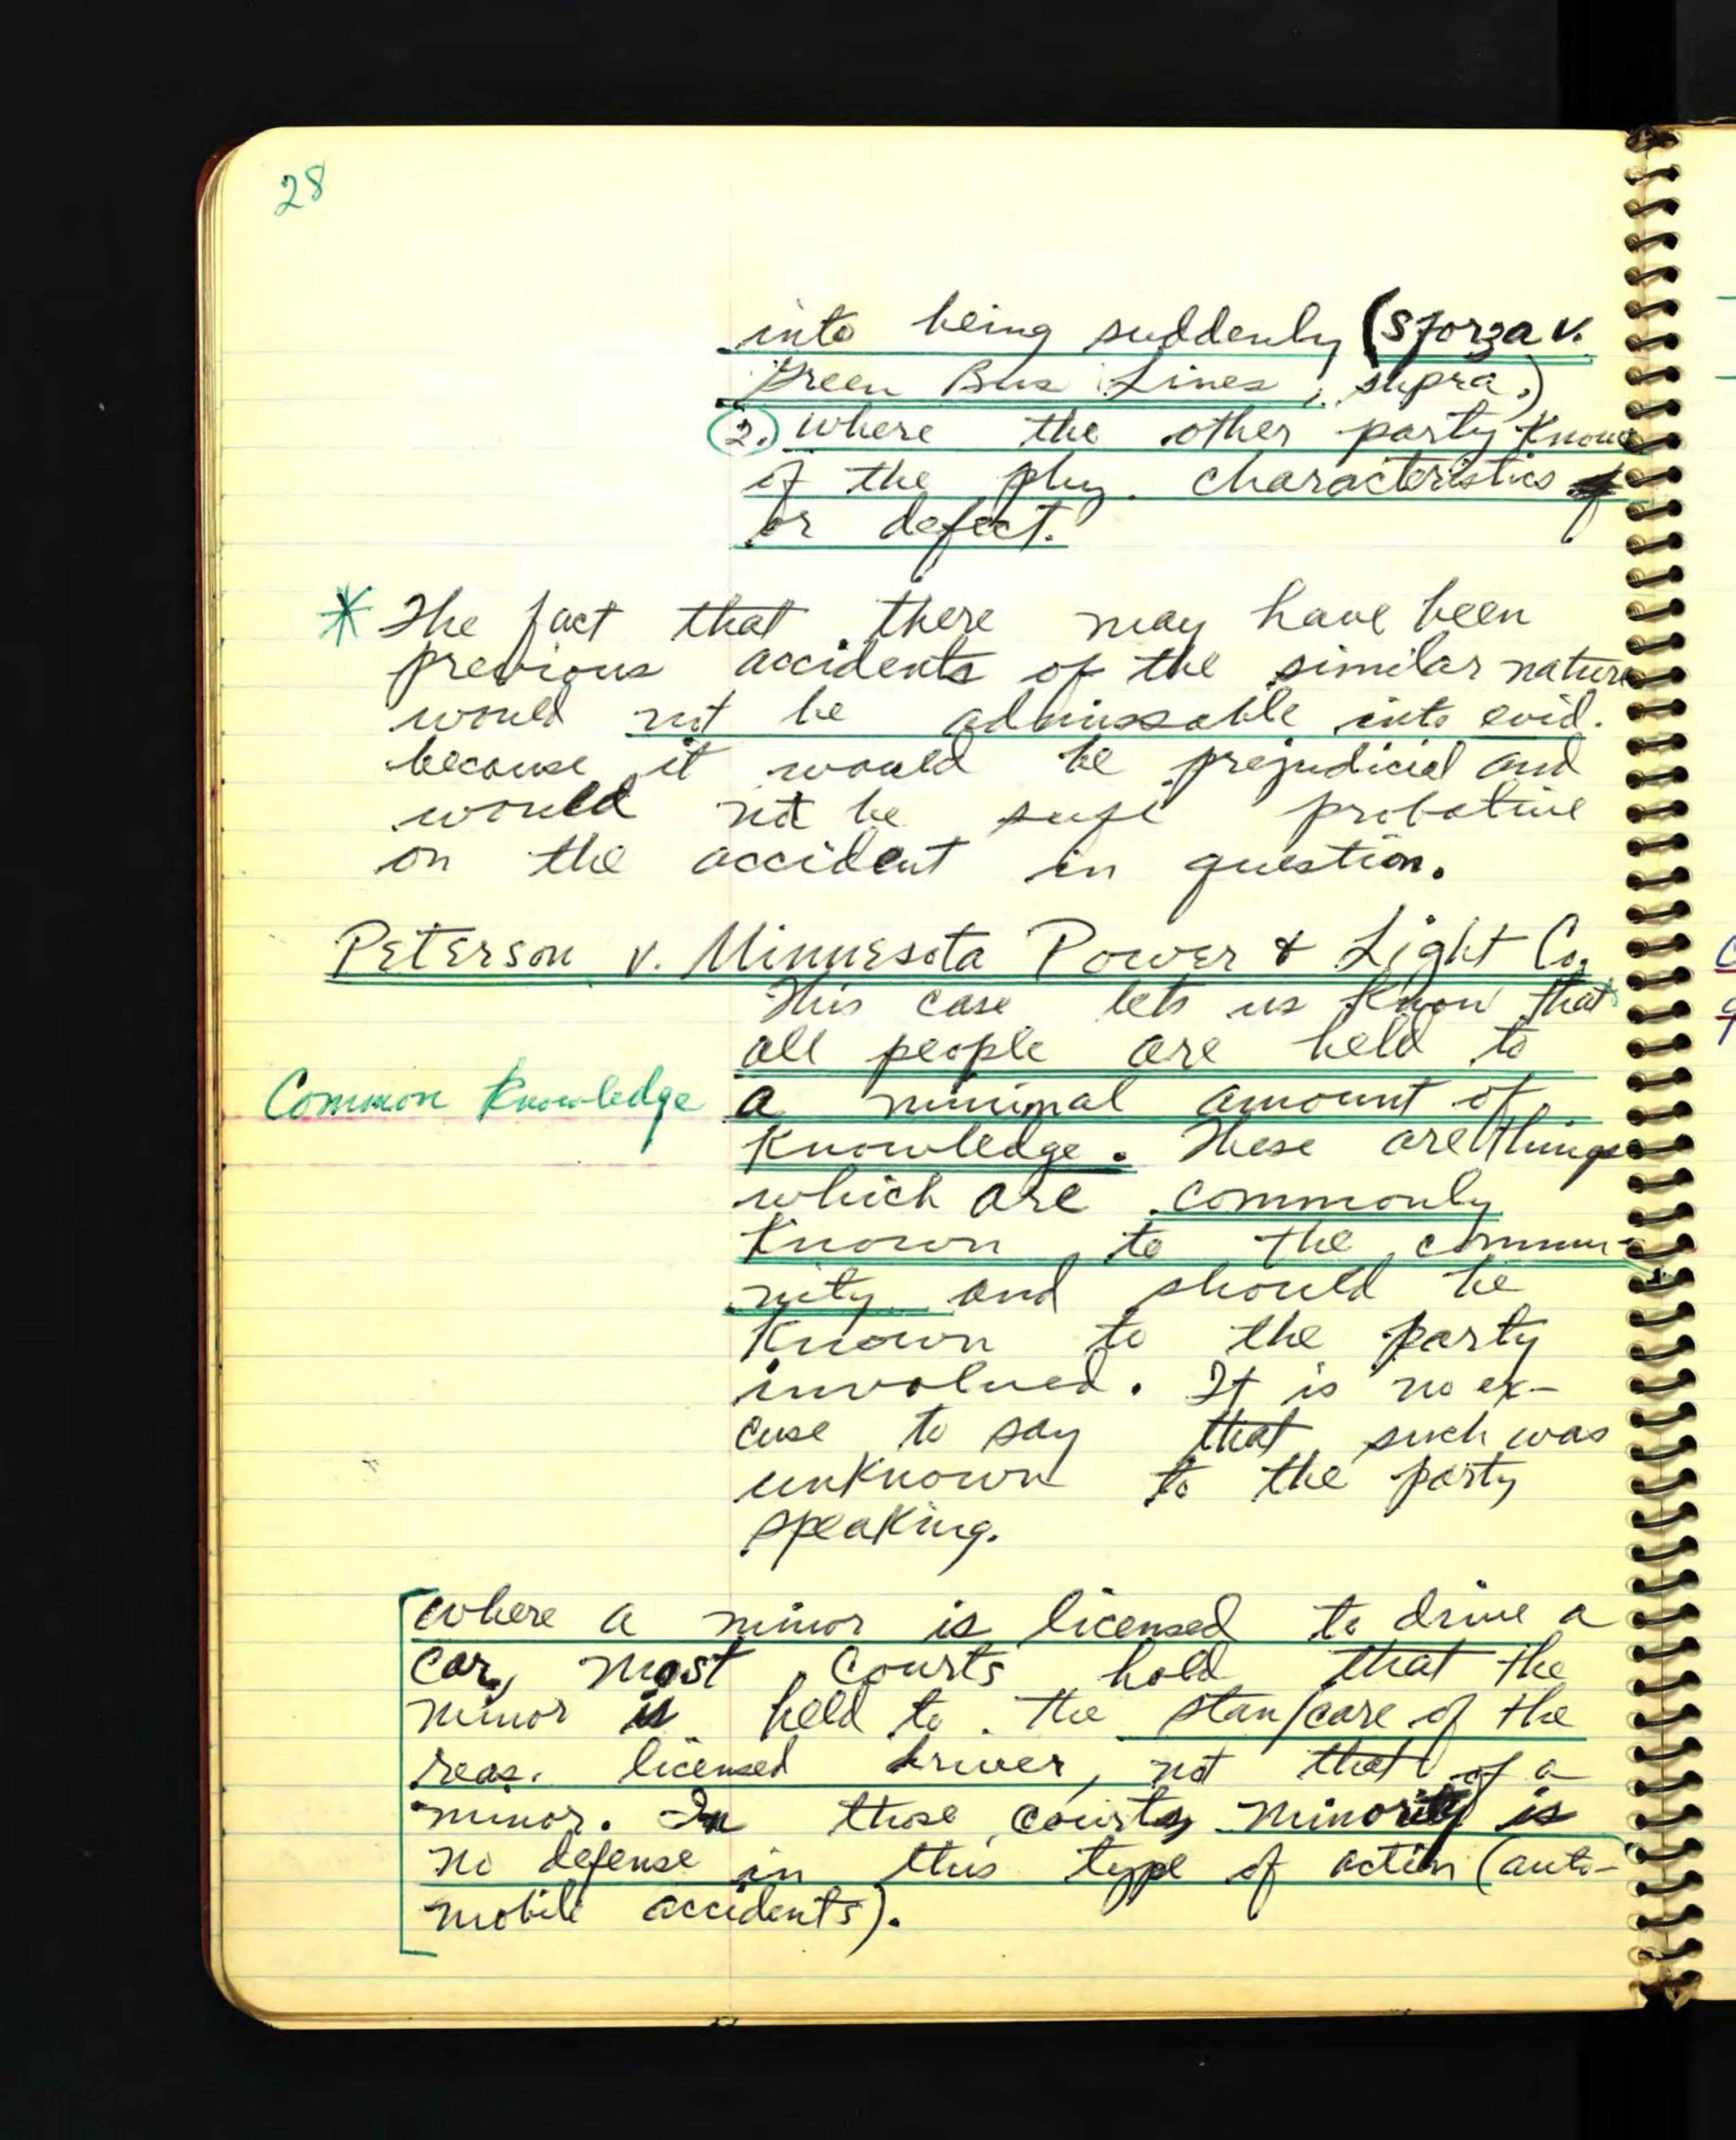 28
into being suddenly (Sforza v.
Green Bus Lines, supra.)
2.) where the other party knows
of the phy. characteristics
or defect.
* The fact that there may have been
previous accidents of the similar nature
would not be admissable into evid.
because it would be prejudicial and
would not be suff probative
on the accident in question.
Peterson v. Minnesota Power & Light Co.
This case lets us know that
all people are held to
Common Knowledge a minimal amount of
knowledge. These are things
which are commonly
known to the commu-
nity and should be
known to the party
involved. It is no ex-
cuse to say that such was
unknown to the party
speaking.
Where a minor is licensed to drive a
car, most courts hold that the
minor is held to the stan/care of the
reas. licensed driver, not that of a
minor. In those courts, minority is
no defense in this type of action (auto-
mobile accidents).